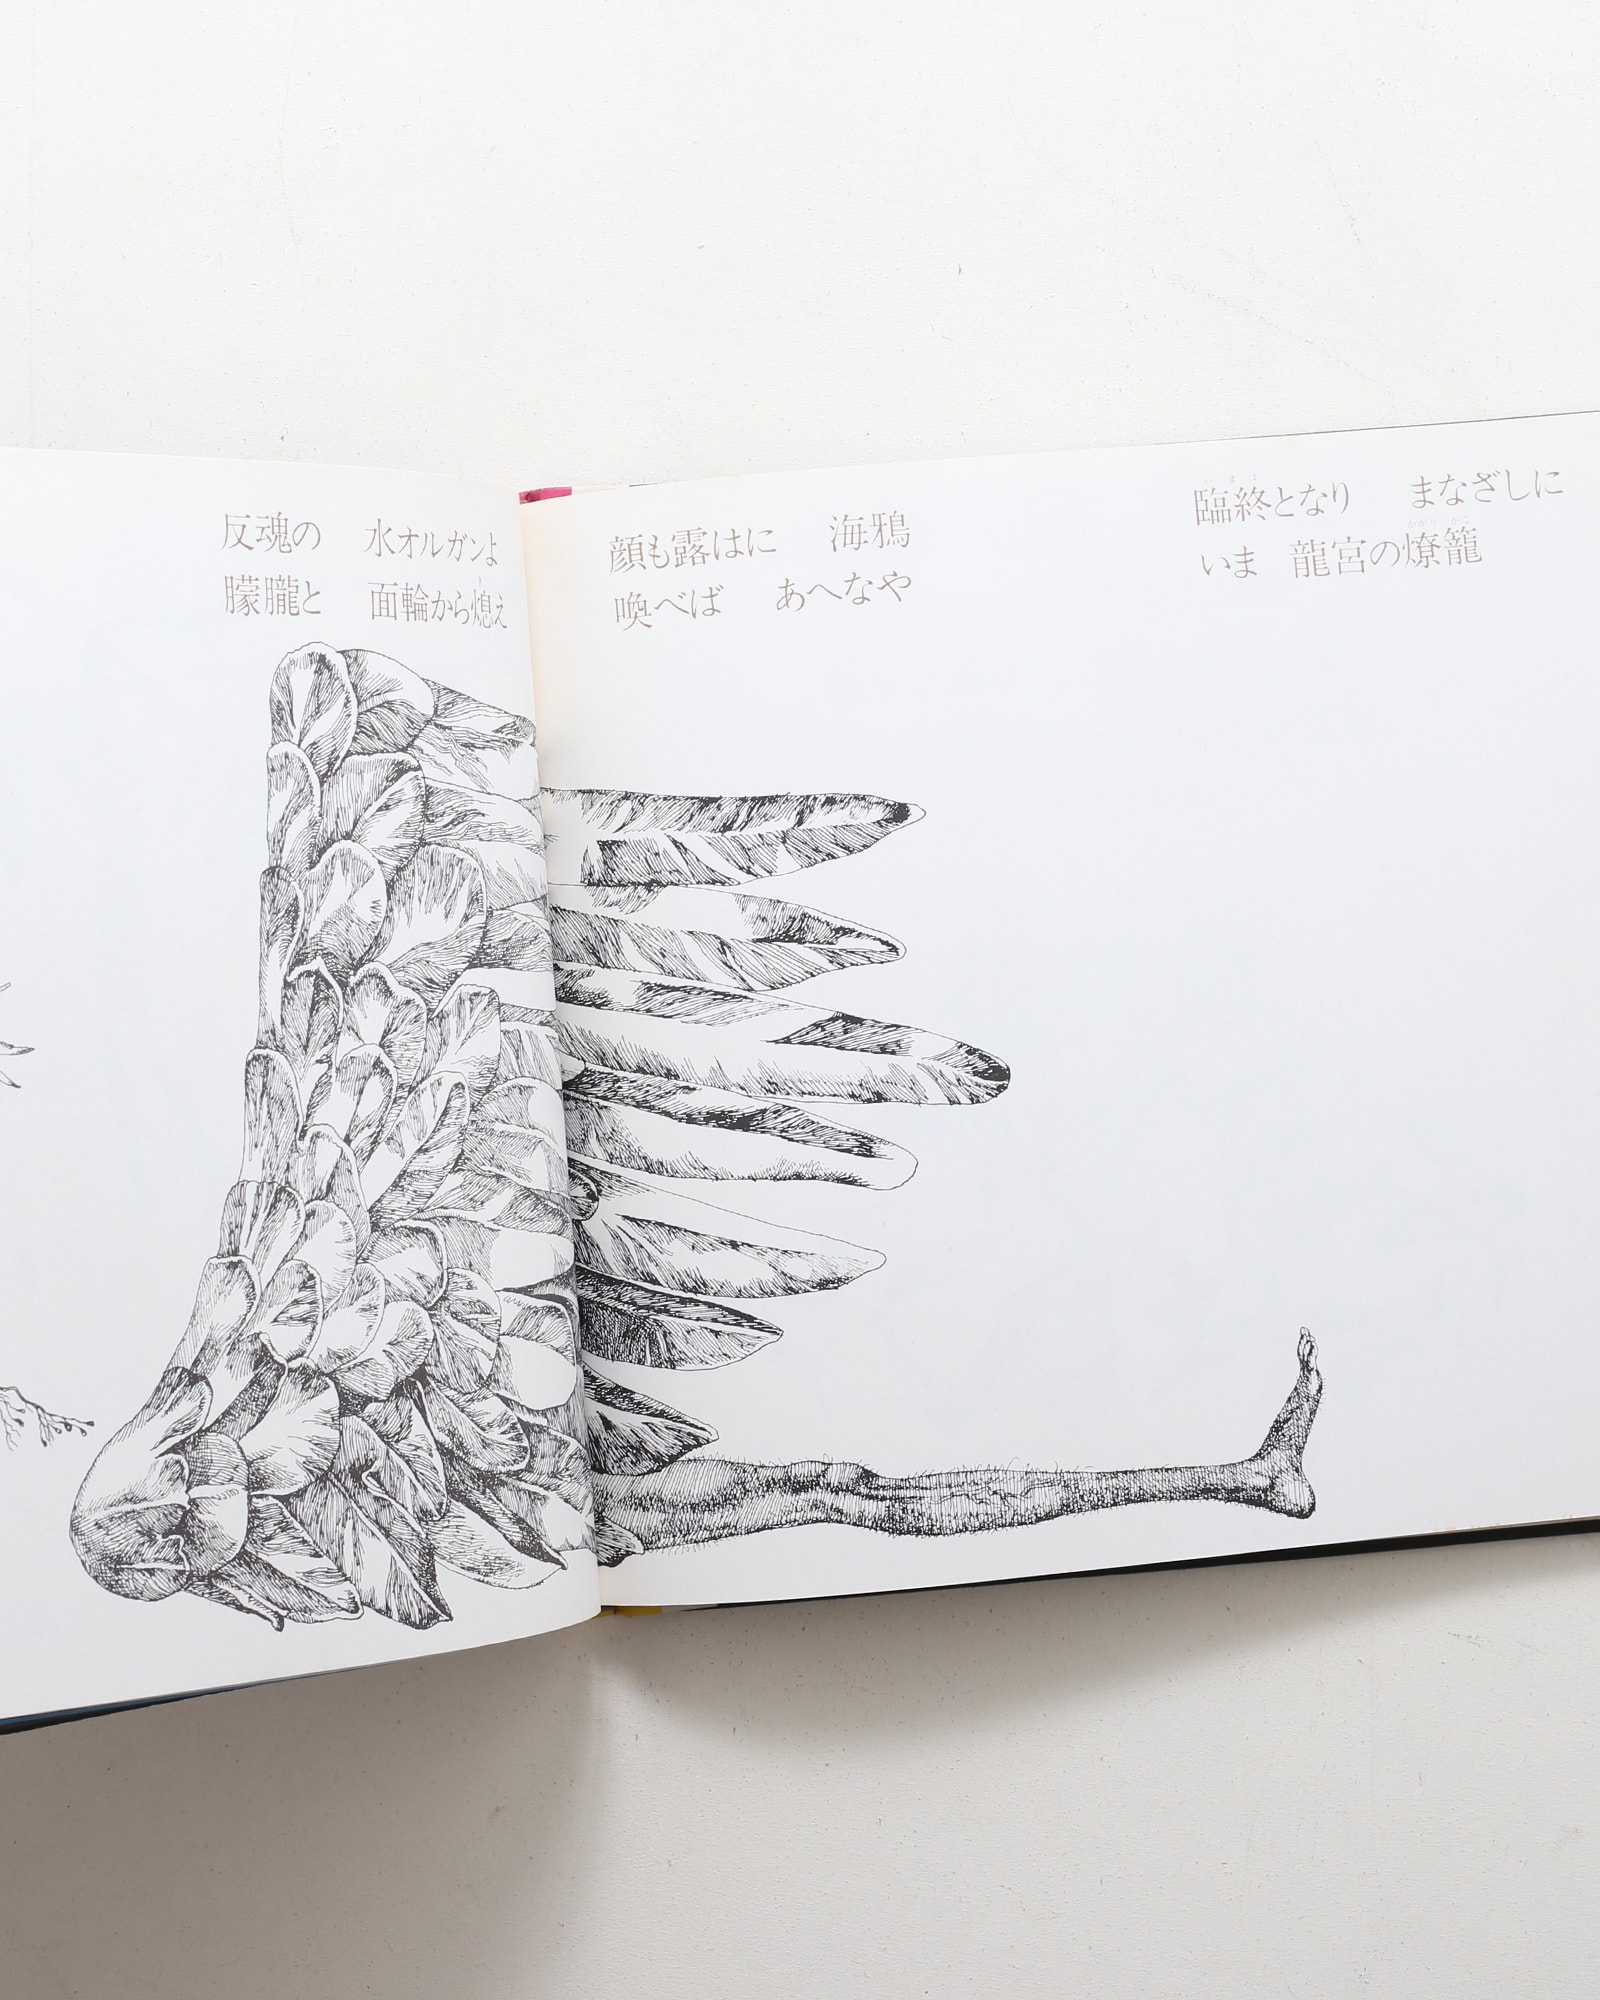 反魂の 水オルガンよ
朦朧と 面輪から熄え
顔も露はに 海鴉
喚べば あへなや
臨終となり まなざしに
いま 龍宮の燎籠